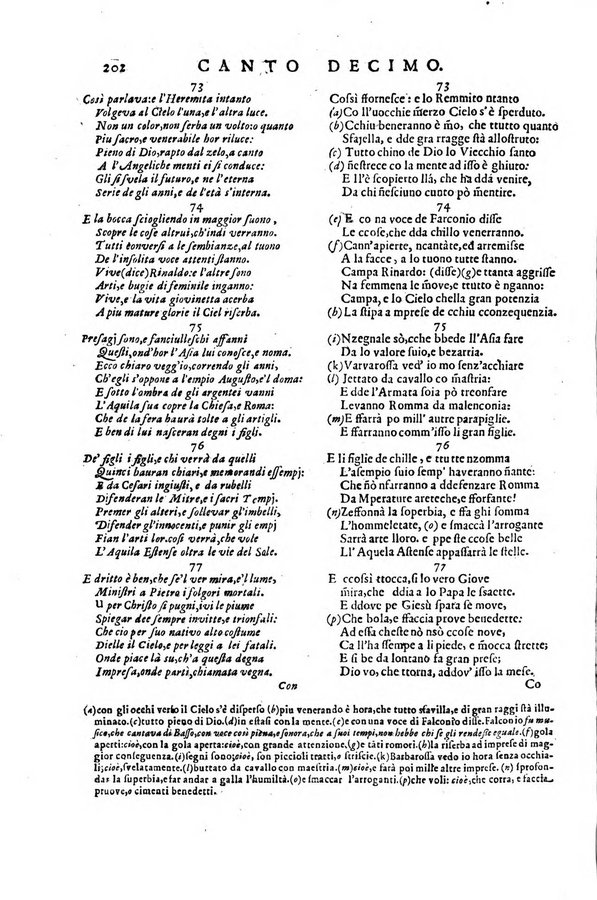 202 CANTO DECIMO.
73
Così parlava: e l'Heremita intanto
Volgeva al Cielo l'una, e l'altra luce.
Non un color, non serba un volto: o quanto
Piu sacro, e venerabile hor riluce:
Pieno di Dio, rapto dal zelo, a canto
A l'Angeliche menti ei si conduce:
Gli si svela il futuro, e ne l'eterna
Serie de gli anni, e de l'età s'interna.
74
E la bocca sciogliendo in maggior suono,
Scopre le cose altrui, ch'indi verranno.
Tutti conversi a le sembianze, al tuono
De l'insolita voce attenti stanno.
Vive (dice) Rinaldo: e l'altre sono
Arti, e bugie di feminile inganno:
Vive, e la vita giovinetta acerba
A piu mature glorie il Ciel riserba.
75
Presagj sono, e fanciulleschi affanni
Questi, ond'hor l'Asia lui conosce, e noma.
Ecco chiaro vegg'io, correndo gli anni,
Ch'egli s'oppone a l'empio Augusto, e'l doma:
E sotto l'ombra de gli argentei vanni
L'Aquila sua copre la Chiesa, e Roma:
Che de la fera baurà tolte a gli artigli.
E ben di lui nasceran degni i figli.
76
De' figli i figli, e chi verrà da quelli
Quinci bauran chiari, e memorandi essempj:
E da Cesari ingiusti, e da rubelli
Difenderan le Mitre, e i sacri Tempj.
Premer gli alteri, e sollevar gl'imbelli,
Difender gl'innocenti, e punir gli empj
Fian l'arti lor. così verrà, che vole
L'Aquila Estense oltra le vie del Sole.
77
E dritto è ben, che se'l ver mira, e'l lume,
Ministri a Pietro i folgori mortali.
U per Christo si pugni, ivi le piume
Spiegar dee sempre invitte, e trionfali:
Che cio per suo nativo alto costume
Dielle il Cielo, e per leggi a lei fatali.
Onde piace là su, ch'a questa degna
Impresa, onde partì, chiamata vegna.
Con
73
Cossì sfornesce: e lo Remmito ntanto
(a) Co ll'uocchie mierzo Cielo s'è sperduto.
(b) Cchiu beneranno è mò, che ttutto quanto
Sfajella, e dde gra rragge stà allustruto.
(c) Tutto chino de Dio lo Viecchio santo
(d) n'estrece co la mente ad isse è ghiuto:
E ll'è scopierto llà, che ha dda venire,
Da chi nesciuno cunto pò mentire.
74
(e) E co na voce de Farconio disse
Le ccose, che dda chillo verranno.
(f) Cann'apierte, ncantate, ed arremisse
A la facce, a lo tuono tutte stanno.
Campa Rinardo: (disse) (g) e tanta aggrisse
Na femmena le mmove, che dd'è nganno:
Campa, e lo Cielo chella gran potenzia
(h) La stipa a mprese de cchiu cconzequenzia.
75
(i) Nzegnale sò, cche bbede ll'Asia fare
Da lo valore suio, e bezarria.
(k) Varvarossa ved' io mo senz'acchiare
(l) Jettato da cavallo co mastria:
E dde l'Armata soia pò treonfare
Levanno Romma da malenconia:
(m) E ffarrà po mill' autre parapiglie.
E ffarranno comm'isso li gran figlie.
76
E li figlie de chille, e ttutte nzomma
L'asempio suio semp' haveranno nnante:
Che nfarranno a ddefenzare Romma
Da Mperature areteche, e sforfante!
(n) Zeffonnà la soperbia, e ffa ghi somma
L'hommeletate, (o) e smaccà l'arrogante
Sarrà arte lloro. e ppe ste ccose belle
Ll' Aquela Astense appassarrà le stelle.
77
E ccossì ttocca, si lo vero Giove
mirànne, che ddia a lo Papa le ssaette.
E ddove pe Giesù spara se move,
(p) Che bola, e ffaccia prove benedette:
Ad essa cheste nò ssò ccose nove,
Ca ll'hà strette a li piede, e mmocca strette;
E si be da lontano fa gran prese;
Dio vo, che ttorna, addov' issa mese.
Co
(a) con gli occhi verso il Cielo s'è disperso (b) piu venerando è hora, che tutto sfavilla, e di gran raggi stà illuminato. (c) tutto pieno di Dio. (d) in estasi con la mente. (e) con una voce di Falconio disse. Falconio fu musico, che cantava di Basso, con voce così piena, e sonora, che a suoi tempi, non hebbe chi se gli rendesse eguale. (f) gola
aperti: cioè, con la gola aperta: cioè, con grande attenzione. (g) e tati romori. (h) la riserba ad imprese di maggior conseguenza. (i) segni sono: cioè, son piccioli tratti, o striscie. (k) Barbarossa vedo io hora senza occhiali; cioè, svelatamente. (l) buttato da cavallo con maestria. (m) e farà poi mille altre imprese. (n) sprofondar la superbia, e far andar a galla l'humiltà. (o) e smaccar l'arroganti. (p) che voli: cioè, che corra, e faccia
pruove, o cimenti benedetti.